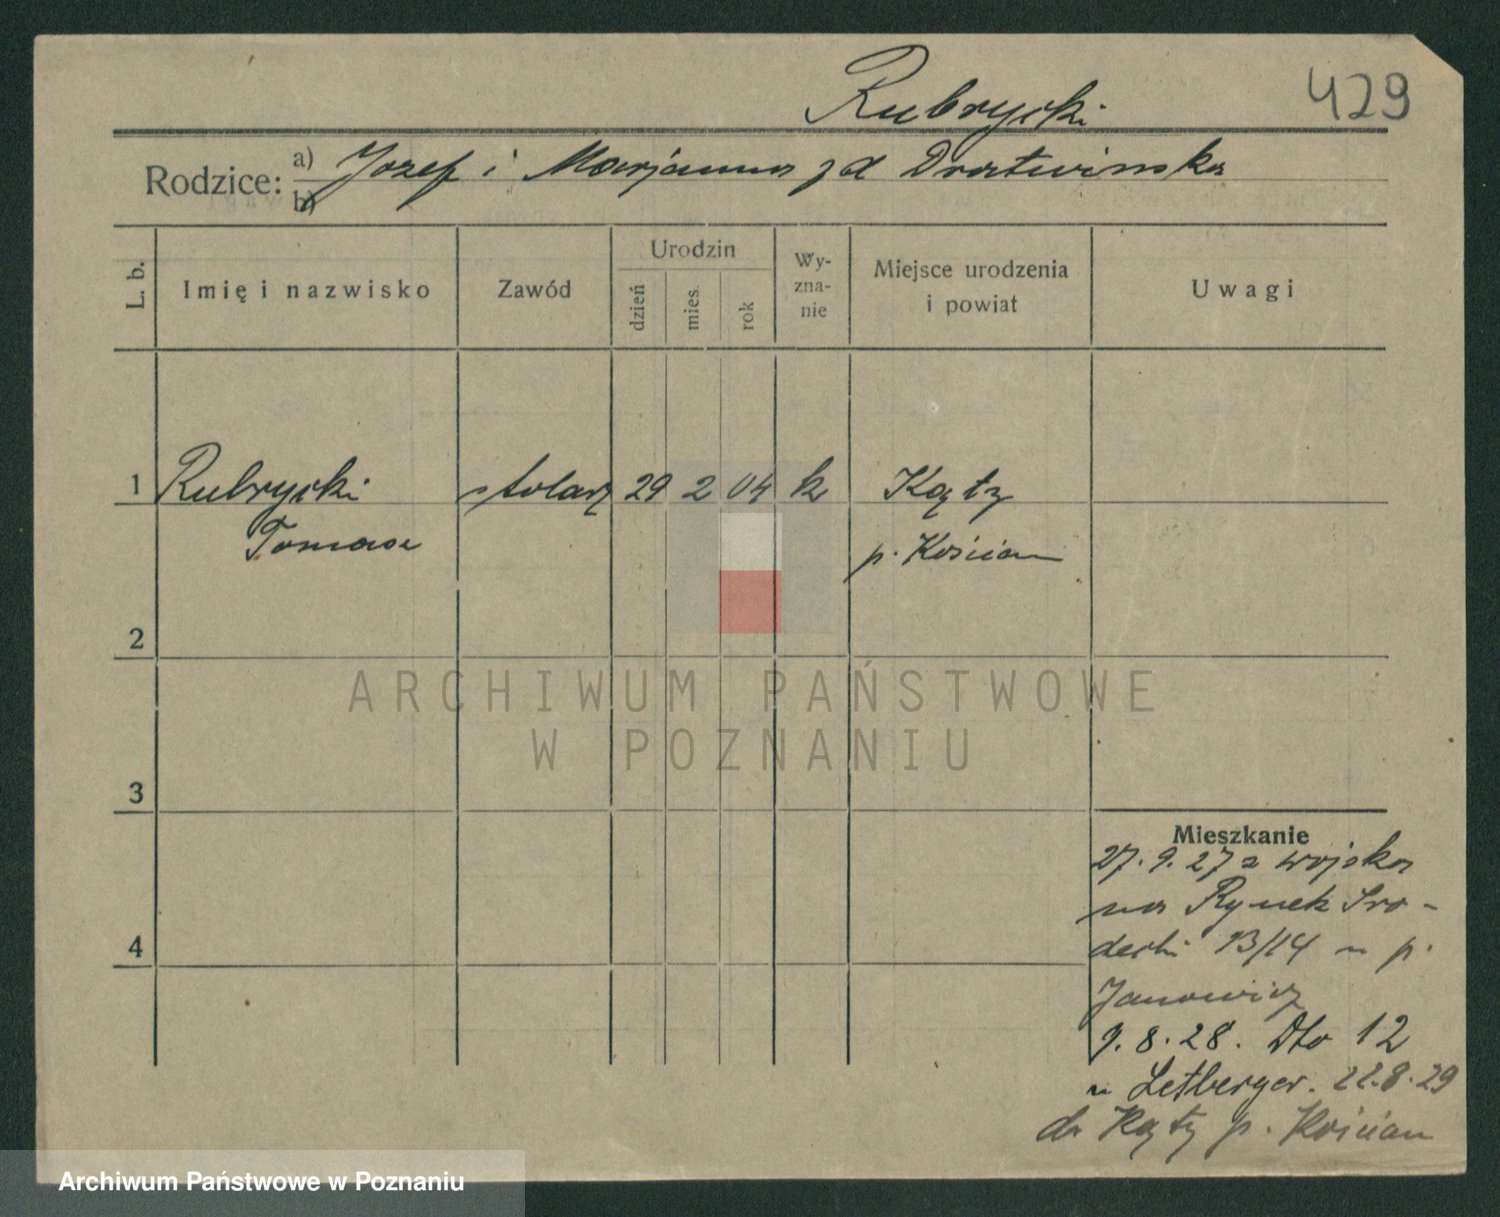 Rubrycki 429
Rodzice: a) Jozef i Marjanna zd Dratwinska
b)
L. b. Imię i nazwisko Zawód Urodzin dzień mies. rok Wy-zna-nie Miejsce urodzenia i powiat Uwagi
1 Rubrycki stolarz 29 2 04 k Kąty
Tomasz p. Kościan
2
ARCHIWUM PAŃSTWOWE
W POZNANIU
3
Mieszkanie
27.9.27 z wojska
na Rynek Śro-
decki 13/14 u p.
4
Janowicz
9.8.28. Dto 12
u Letberger. 22.8.29
do Kąty p. Kościan
Archiwum Państwowe w Poznaniu